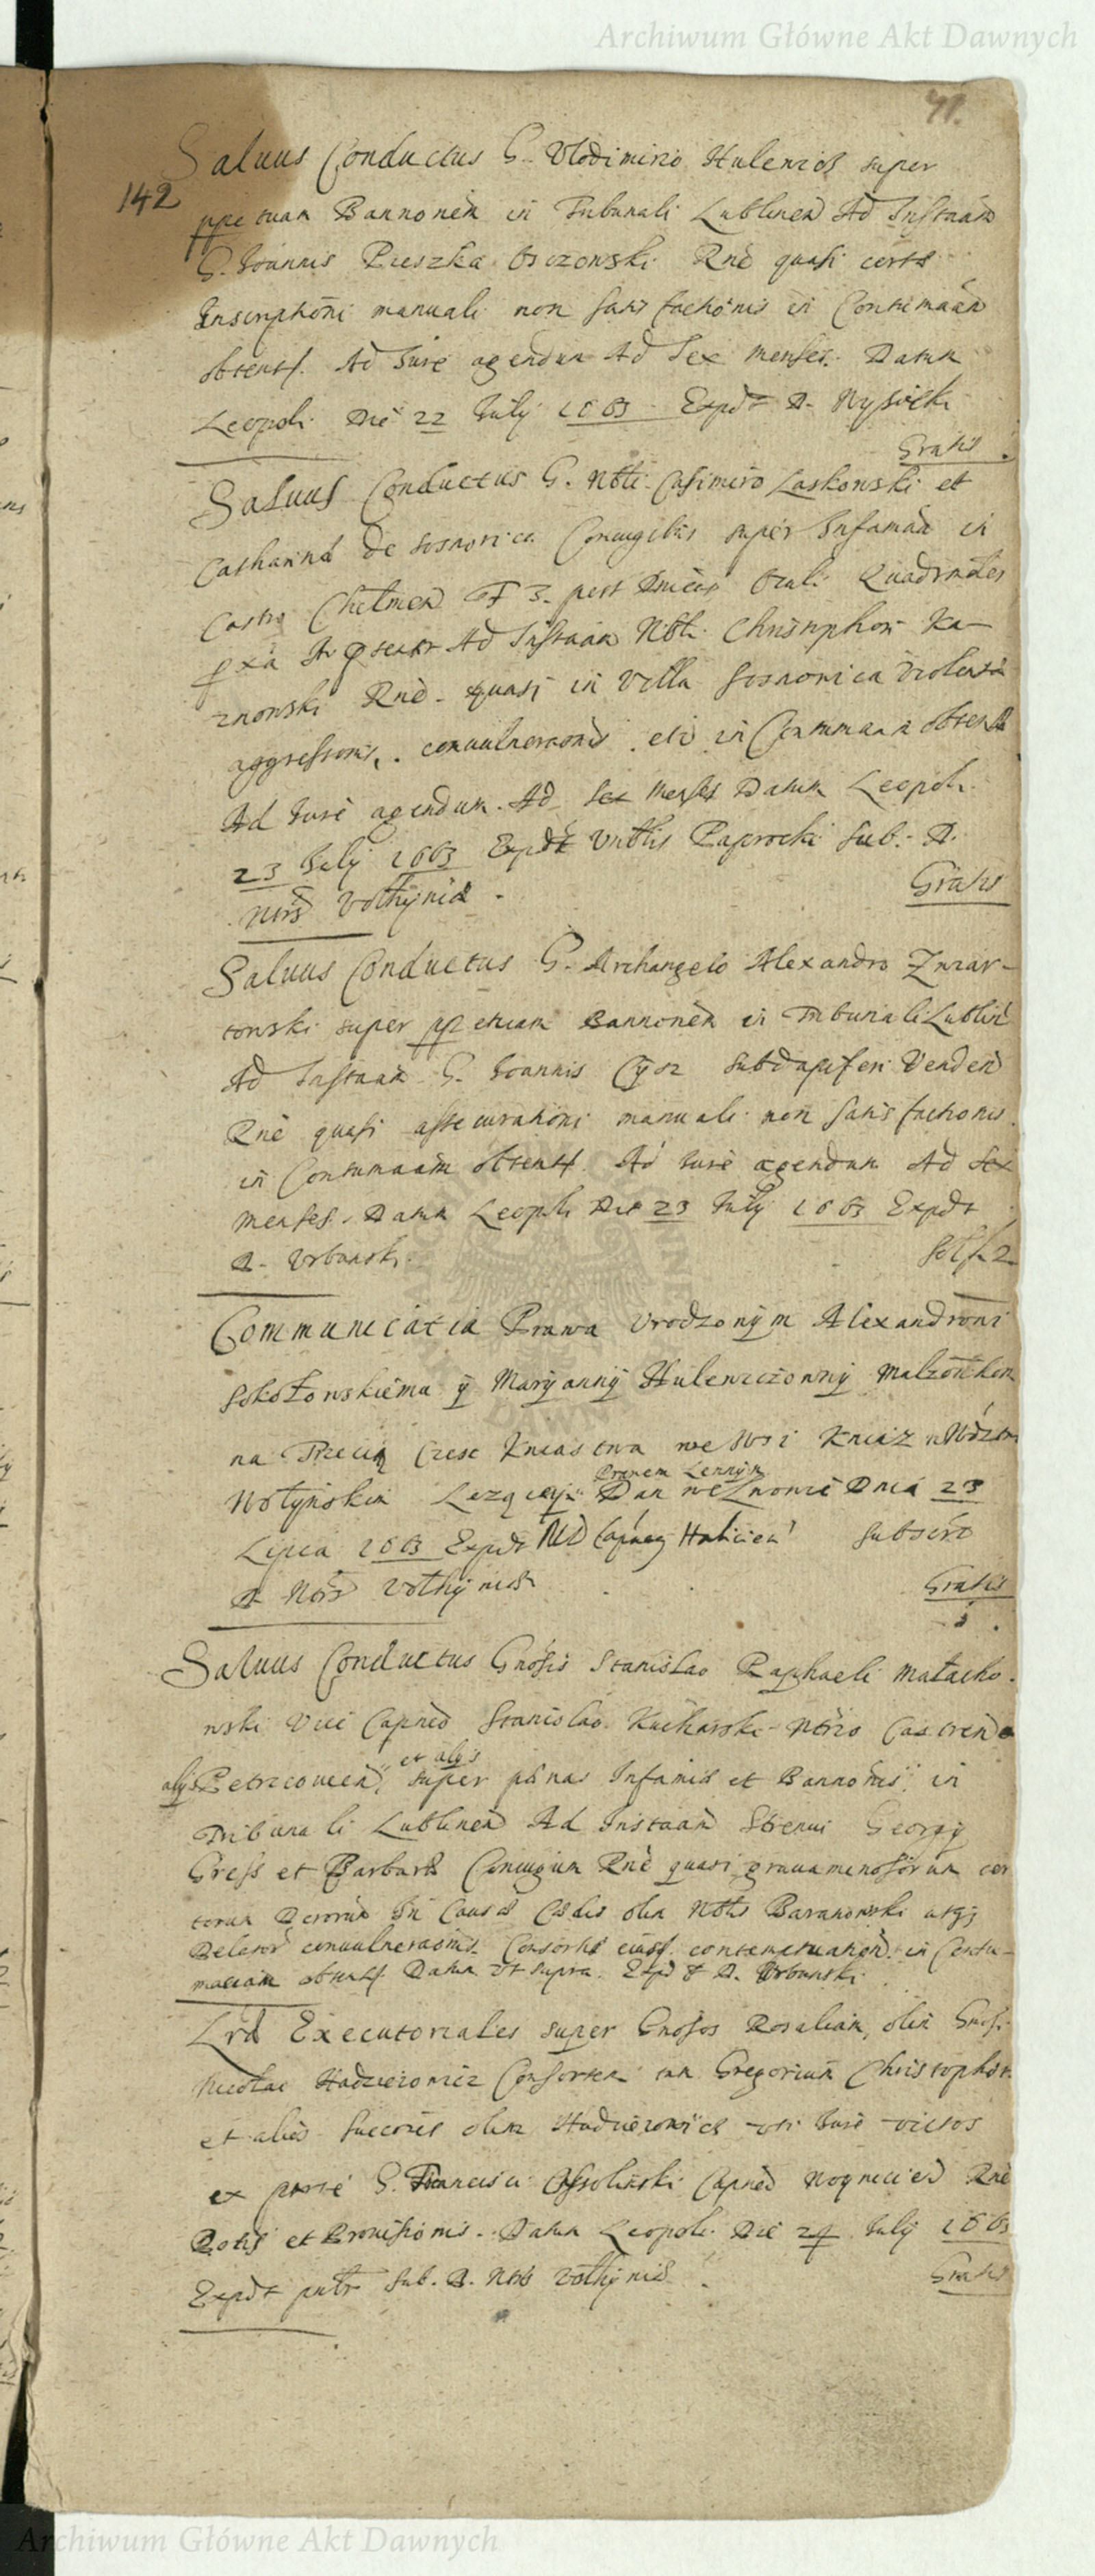 Archiwum Główne Akt Dawnych
71.
Saluus Conductus G. Vlodimirio Hulewicz super
142
ppetuam Bannonem in Tribunali Lublinen Ad Instaam
G. Joannis Pieszka Rne quasi certae
Inscriptioni manuali non satisfactionis in Contumaam
obtent. Ad Jure agendum Ad Sex menses. Datum
Leopoli Die 22 July 1663 Expdt D. Wysocki
Gratis
Saluus Conductus G. Nbli Casimiro Laskowski et
Catharinae de Sosnowica Coniugibus super Infamia in
Castro Chelmen F 3. post Dnicam Oculi Quadrmales
pxa Ad Instaam Nbli Christophori Ka-
znowski Rne quasi in Villa Sosnowica violentae
aggressionis, conuulneraonis etc in Contumaam obtent
Ad Jure agendum. Ad Sex Menses Datum Leopoli
23 July 1663 Expdt Paprocki Sub. D.
Nris Volhyniae
Gratis
Saluus Conductus G. Archangelo Alexandro Zwiar-
towski super ppetuam Bannonem in Tribunali Lublin
Ad Instaam G. Joannis Subdapiferi Venden
Rne quasi assecurationi manuali non satisfactionis
in Contumaam obtent Ad Jure agendum Ad Sex
menses. Datum Leopoli Die 23 July 1663 Expdt
D. Vrbanski
Communicatia Prawa Vrodzonym Alexandrowi
Sokołowskiemu y Maryanny Hulewiczowny Malzonkom
na Trzecią Czesc Kniastwa we Wsi Kniaz
Prawem Lennym
Wołyńskim Lezącey Dan we Lwowie Dnia 23
Lipca 1663 Expdt Halicien Subscr
D Nris Volhyniae
Gratis
Saluus Conductus Gnosis Stanislao Raphaeli Małacho-
wski Vice Capneo Stanislao Kucharski Nrio Castrens
et alys
Petricouien, super paenas Infamiae et Bannonis, in
Tribunali Lublinen Ad Instaam Strenui Georgy
Gress et Barbarae Coniugum Rne quasi grauaminosorum cer
torum Decretorum In Causa Caedis olim Nblis Baranowski atqz
conuulneraonis Consortis eius in Contu-
maciam obtent. Datum Vt supra. Expdt D. Vrbanski
Lrae Executoriales super Gnosos Rosaliam, olim Gnosi
Nicolai Hadziewicz Consortem tum Gregorium Christophor
et alios Succores olim vti Jure victos
ex parte G. Francisci Ossolinski Capnei Woynicien Rne
Dotis et Prouisionis. Datum Leopoli Die 24 July 1663
Expdt Sub. D. Nris Volhyniae
Gratis
Archiwum Główne Akt Dawnych